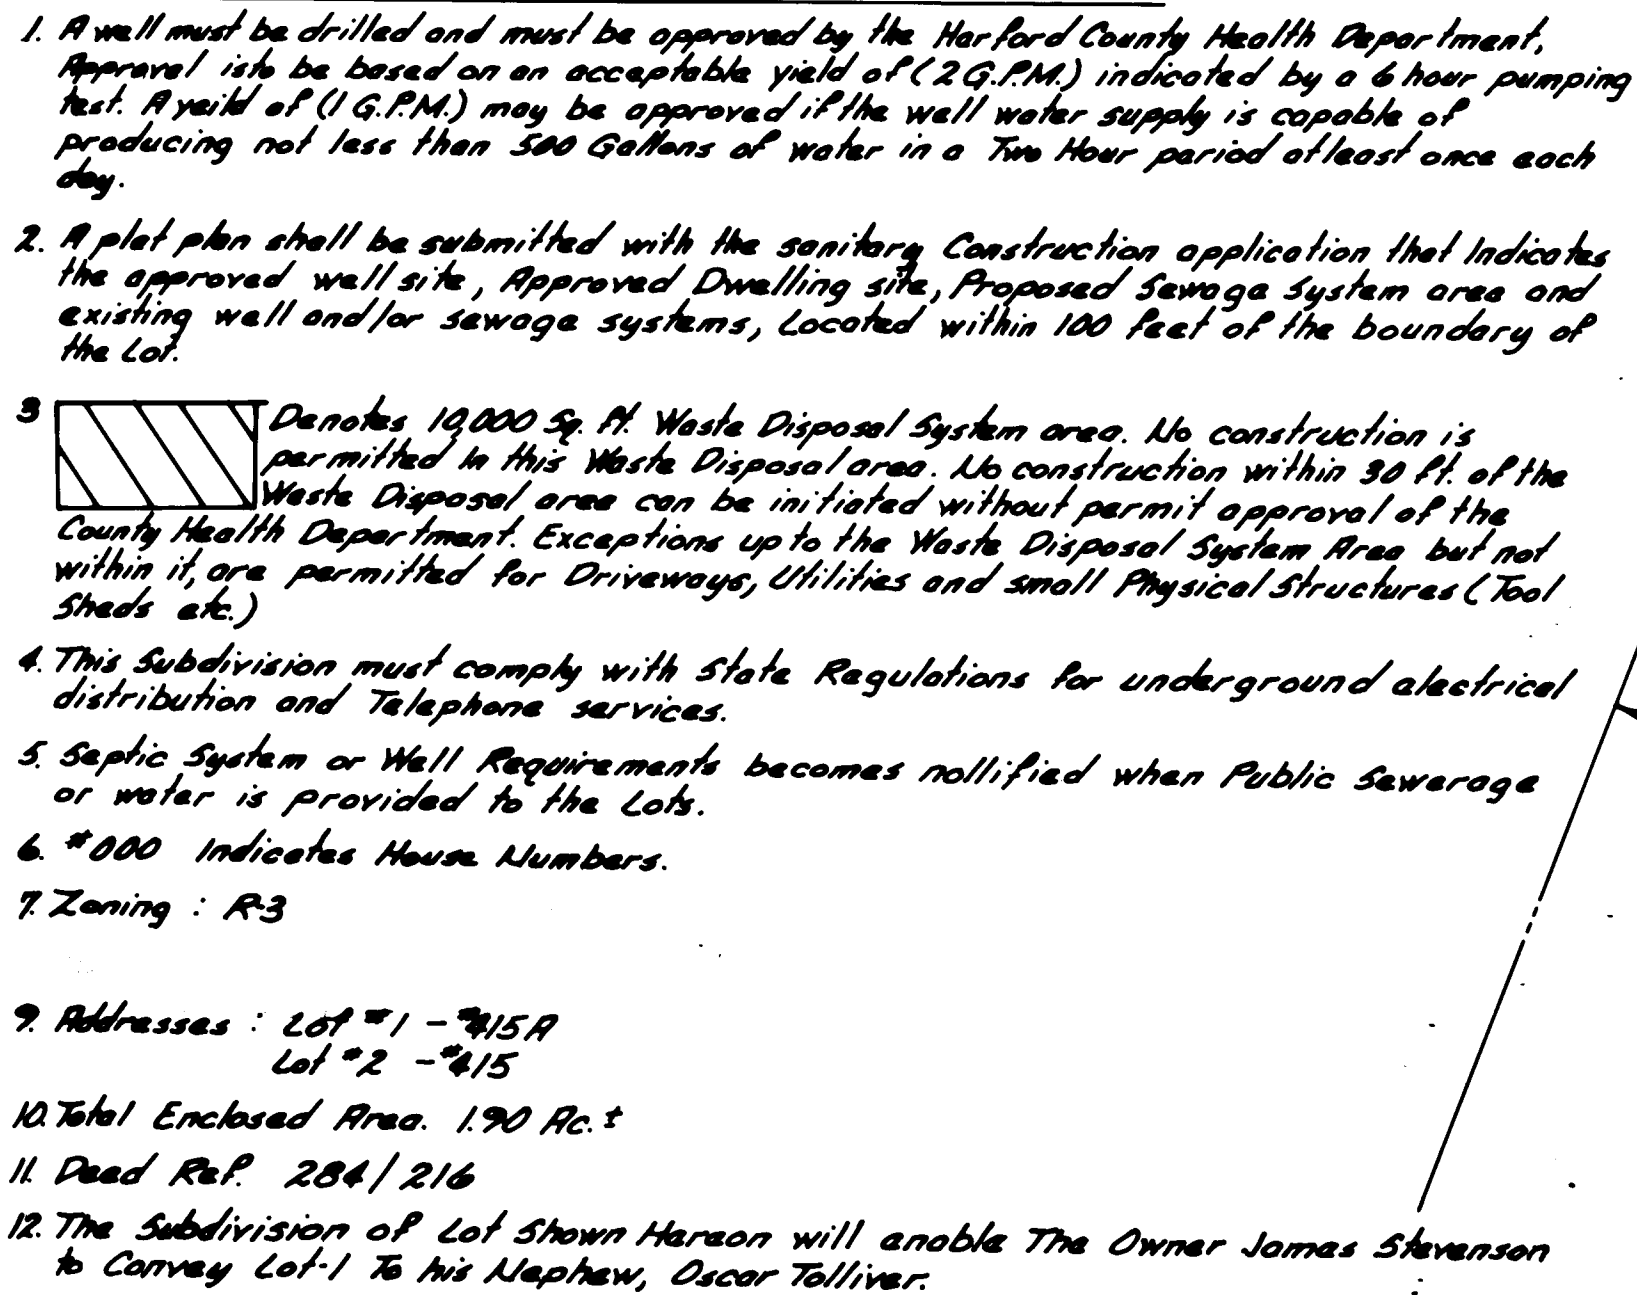 1. A well must be drilled and must be approved by the Harford County Health Department,
Approval is to be based on an acceptable yield of (2 G.P.M.) indicated by a 6 hour pumping
test. A yeild of (1 G.P.M.) may be approved if the well water supply is capable of
producing not less than 500 Gallons of water in a Two Hour period at least once each
day.
2. A plat plan shall be submitted with the sanitary Construction application that Indicates
the approved well site, Approved Dwelling site, Proposed Sewage System area and
existing well and/or sewage systems, Located within 100 feet of the boundary of
the Lot.
3 Denotes 10,000 Sq. Ft. Waste Disposal System area. No construction is
permitted In this Waste Disposal area. No construction within 30 ft. of the
Waste Disposal area can be initiated without permit approval of the
County Health Department. Exceptions up to the Waste Disposal System Area but not
within it, are permitted for Driveways, Utilities and small Physical Structures (Tool
Sheds etc.)
4. This Subdivision must comply with State Regulations for underground electrical
distribution and Telephone services.
5. Septic System or Well Requirements becomes nollified when Public Sewerage
or water is provided to the Lots.
6. #000 Indicates House Numbers.
7. Zoning : R-3
9. Addresses : Lot #1 - #415A
Lot #2 - #415
10. Total Enclosed Area. 1.90 Ac.±
11. Deed Ref. 284/216
12. The Subdivision of Lot Shown Hereon will enable The Owner James Stevenson
to Convey Lot-1 To his Nephew, Oscar Tolliver.